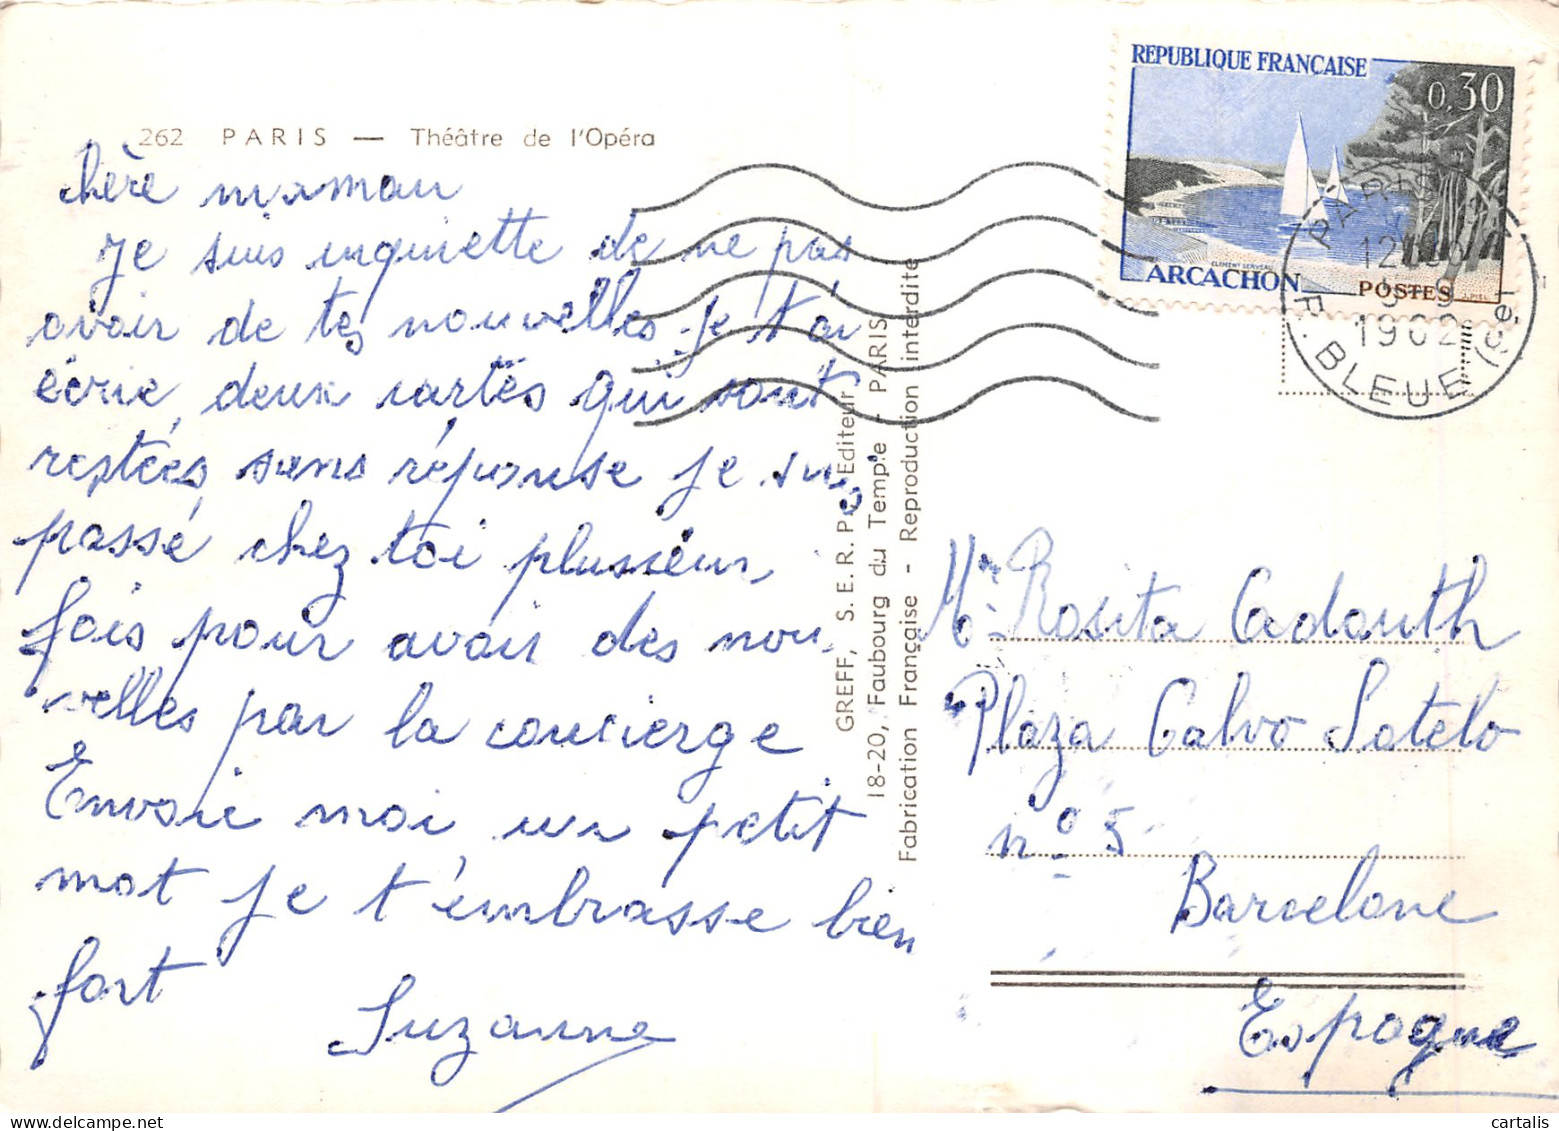 262 PARIS — Théâtre de l'Opéra
chère maman
Je suis inquiette de ne pas
avoir de tes nouvelles je t'ai
écrie deux cartes qui sont
restées sans réponse je suis
passé chez toi plusieur
fois pour avoir des nou
velles par la concierge
Envoie moi un petit
mot je t'embrasse bien
fort
Suzanne
GREFF, S. E. R. P. Editeur
18-20, Faubourg du Temple - PARIS
Fabrication Française - Reproduction interdite
REPUBLIQUE FRANÇAISE
0,30
CLEMENT SERVEAU
ARCACHON
POSTES
PARIS
1962
R. BLEUE (9e)
Mme Rosita Cadouth
Plaza Calvo Sotelo
nº 5
Barcelone
Espagne
cartalis